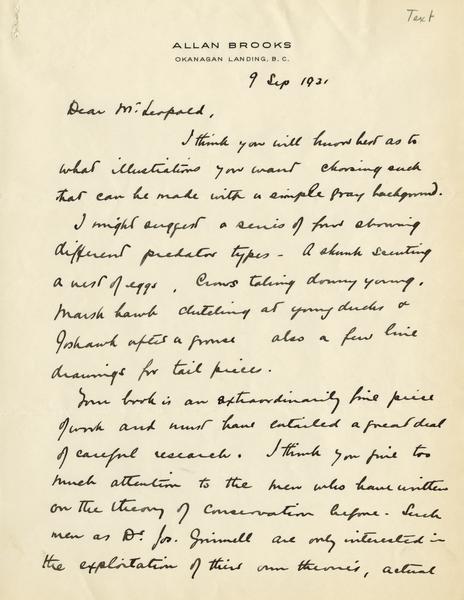 Text
ALLAN BROOKS
OKANAGAN LANDING, B. C.
9 Sep 1931
Dear Mr. Leopold,
I think you will know best as to
what illustrations you want choosing such
that can be made with a simple gray background.
I might suggest a series of four showing
different predator types - A skunk scenting
a nest of eggs, Crows taking downy young,
Marsh hawk clutching at young ducks &
Goshawk after a grouse also a few line
drawings for tail pieces.
Your book is an extraordinarily fine piece
of work and must have entailed a great deal
of careful research. I think you give too
much attention to the men who have written
on the theory of conservation before. Such
men as Dr. Jos. Grinnell are only interested in
the exploitation of their own theories, actual